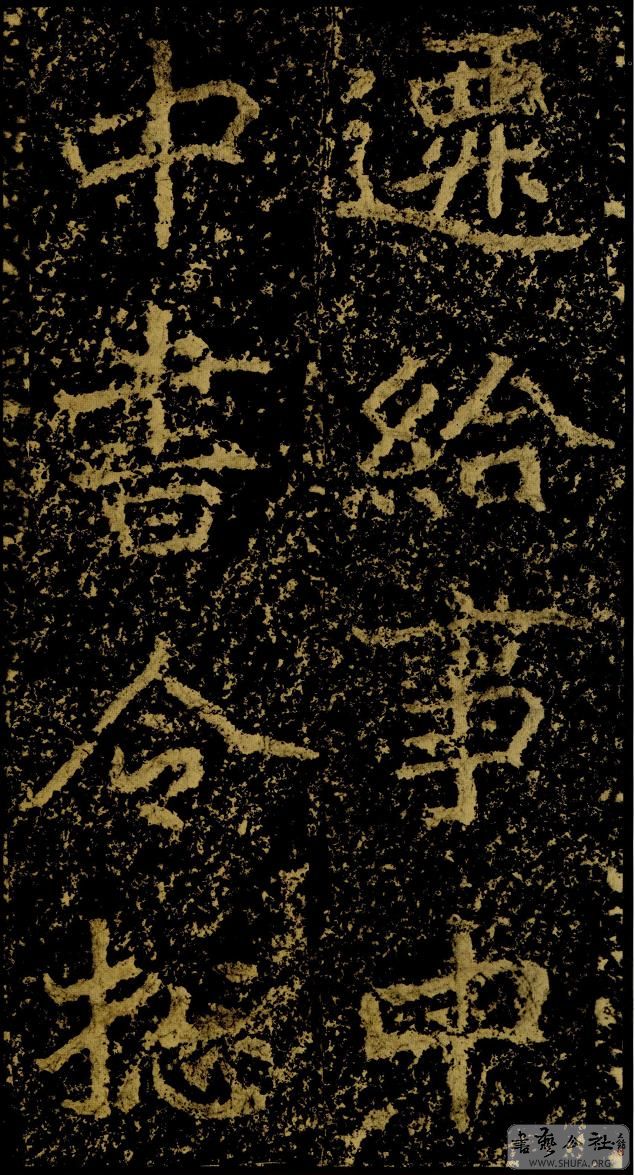 遷給事中
中書令揔
書藝公社
WWW.SHUFA.ORG